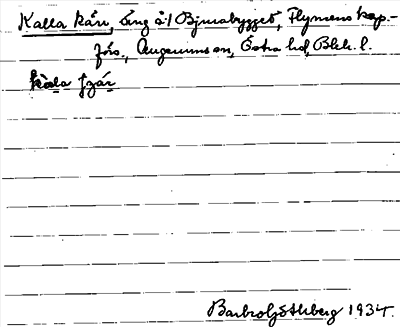 Kalla kärr, äng å 1 Bjurabygget, Flymens kap.-
förs., Augerums sn, Östra hd, Blek. l.
kala
Barbro Göthberg 1934.